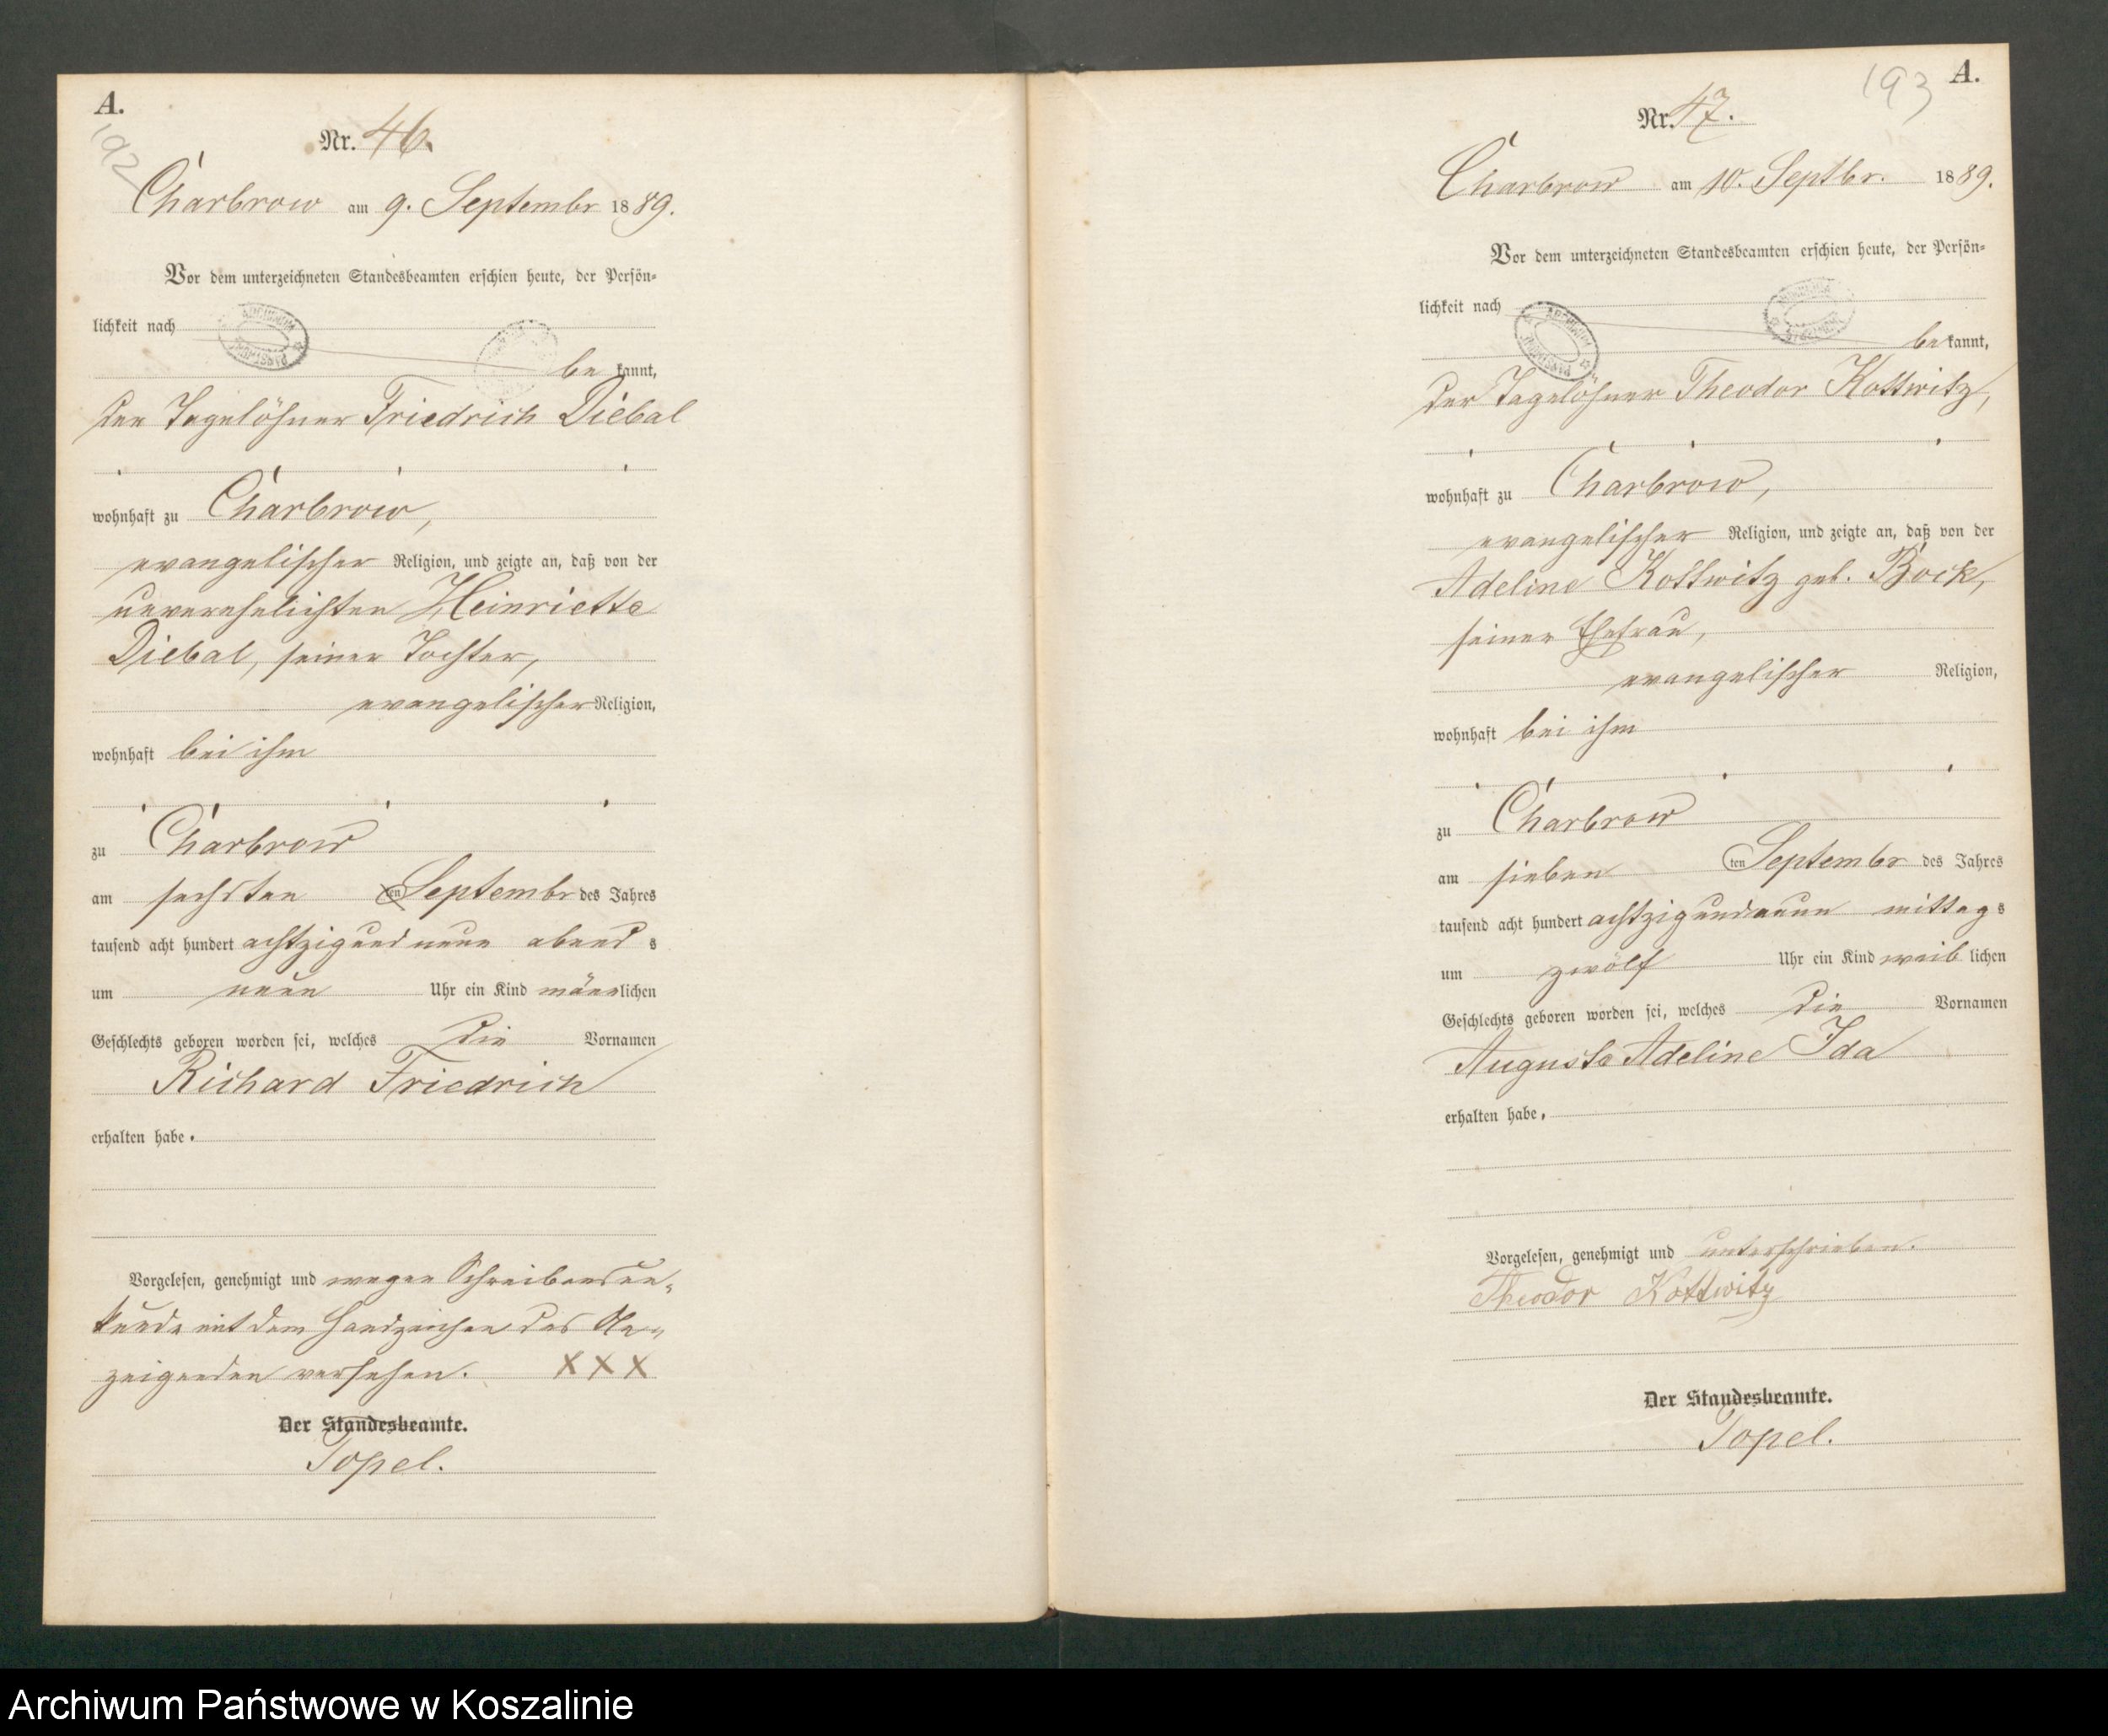 A.
192
Nr. 46.
Charbrow am 9. Septembr 1889.
Vor dem unterzeichneten Standesbeamten erschien heute, der Persön-
lichkeit nach
bekannt,
der Tagelöhner Friedrich Diebal
wohnhaft zu Charbrow,
evangelischer Religion, und zeigte an, daß von der
unverehelichten Heinriette
Diebal, seiner Tochter,
evangelischer Religion,
wohnhaft bei ihm
zu Charbrow
am sechsten ten Septembr des Jahres
tausend acht hundert achtzig und neun abends
um neun Uhr ein Kind männlichen
Geschlechts geboren worden sei, welches die Vornamen
Richard Friedrich
erhalten habe.
Vorgelesen, genehmigt und wegen Schreibensun-
kunde mit dem Handzeichen des An-
zeigenden versehen. XXX
Der Standesbeamte.
Topel.
193
A.
Nr. 47.
Charbrow am 10. Septbr. 1889.
Vor dem unterzeichneten Standesbeamten erschien heute, der Persön-
lichkeit nach
bekannt,
der Tagelöhner Theodor Kottwitz,
wohnhaft zu Charbrow,
evangelischer Religion, und zeigte an, daß von der
Adeline Kottwitz geb. Bock,
seiner Ehefrau,
evangelischer Religion,
wohnhaft bei ihm
zu Charbrow
am sieben ten Septembr des Jahres
tausend acht hundert achtzig und neun mittags
um zwölf Uhr ein Kind weiblichen
Geschlechts geboren worden sei, welches die Vornamen
Auguste Adeline Ida
erhalten habe.
Vorgelesen, genehmigt und unterschrieben.
Theodor Kottwitz
Der Standesbeamte.
Topel.
Archiwum Państwowe w Koszalinie